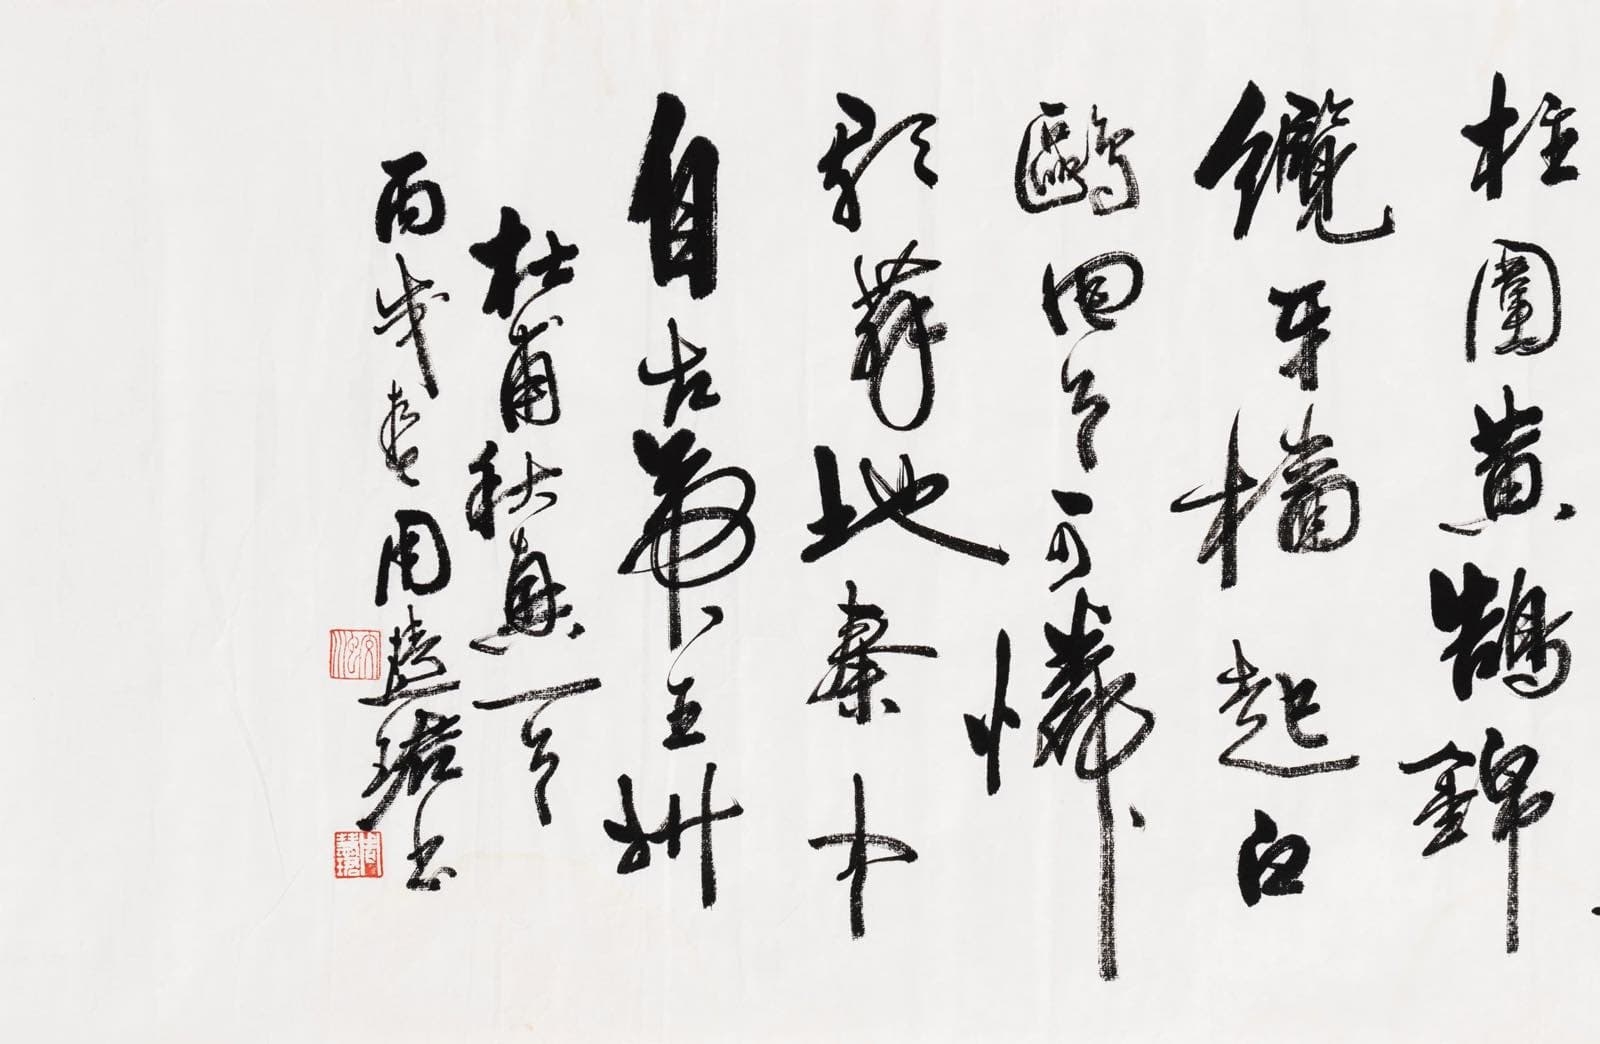 柱圍黃鵠錦
纜牙檣起白
鷗回首可憐
歌舞地秦中
自古帝王州
杜甫秋興一首
丙戌春周慧珺书
周慧珺